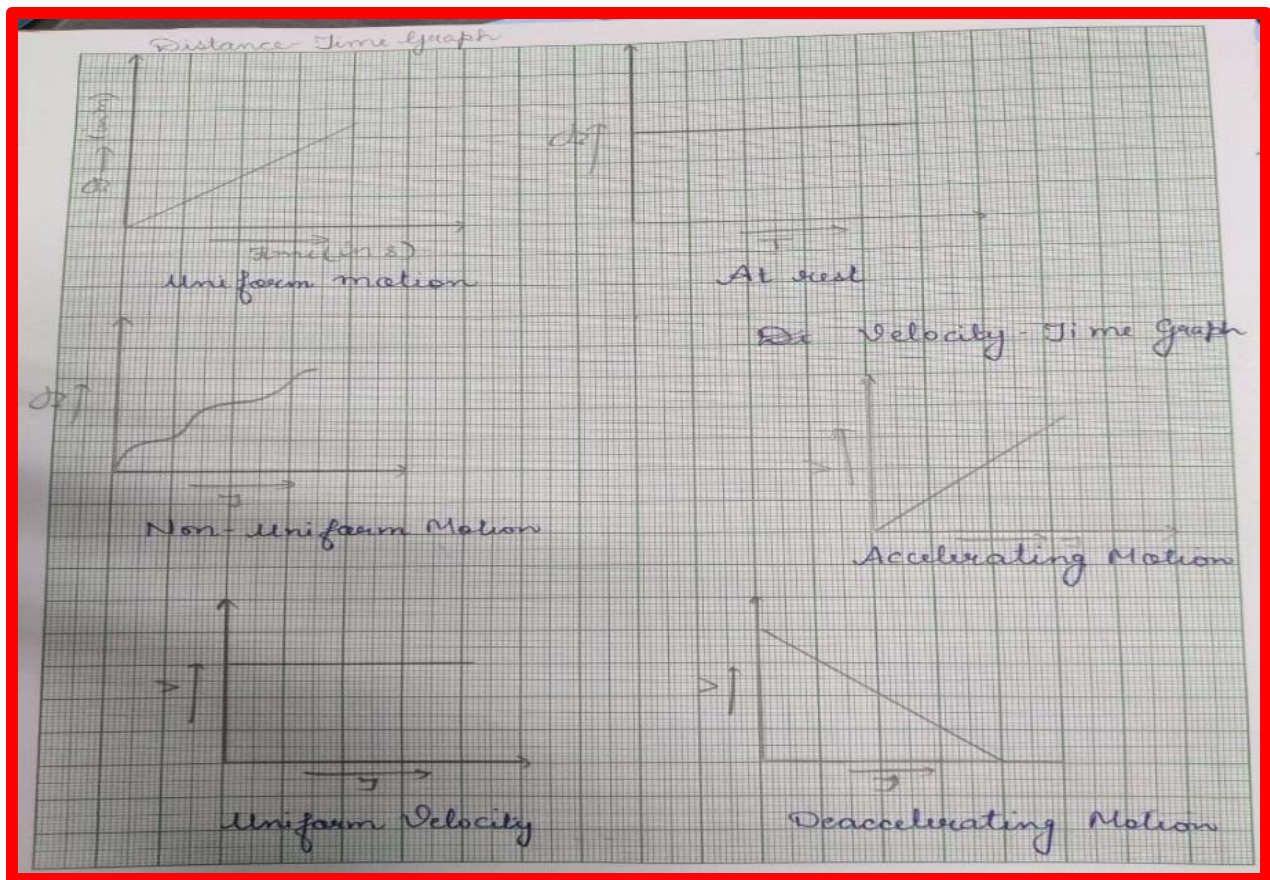 Distance Time Graph
(in m)
Time (in s)
Uniform motion
T
At rest
Velocity - Time Graph
T
Non-Uniform Motion
V
Accelerating Motion
V
T
Uniform Velocity
V
T
Deaccelerating Motion